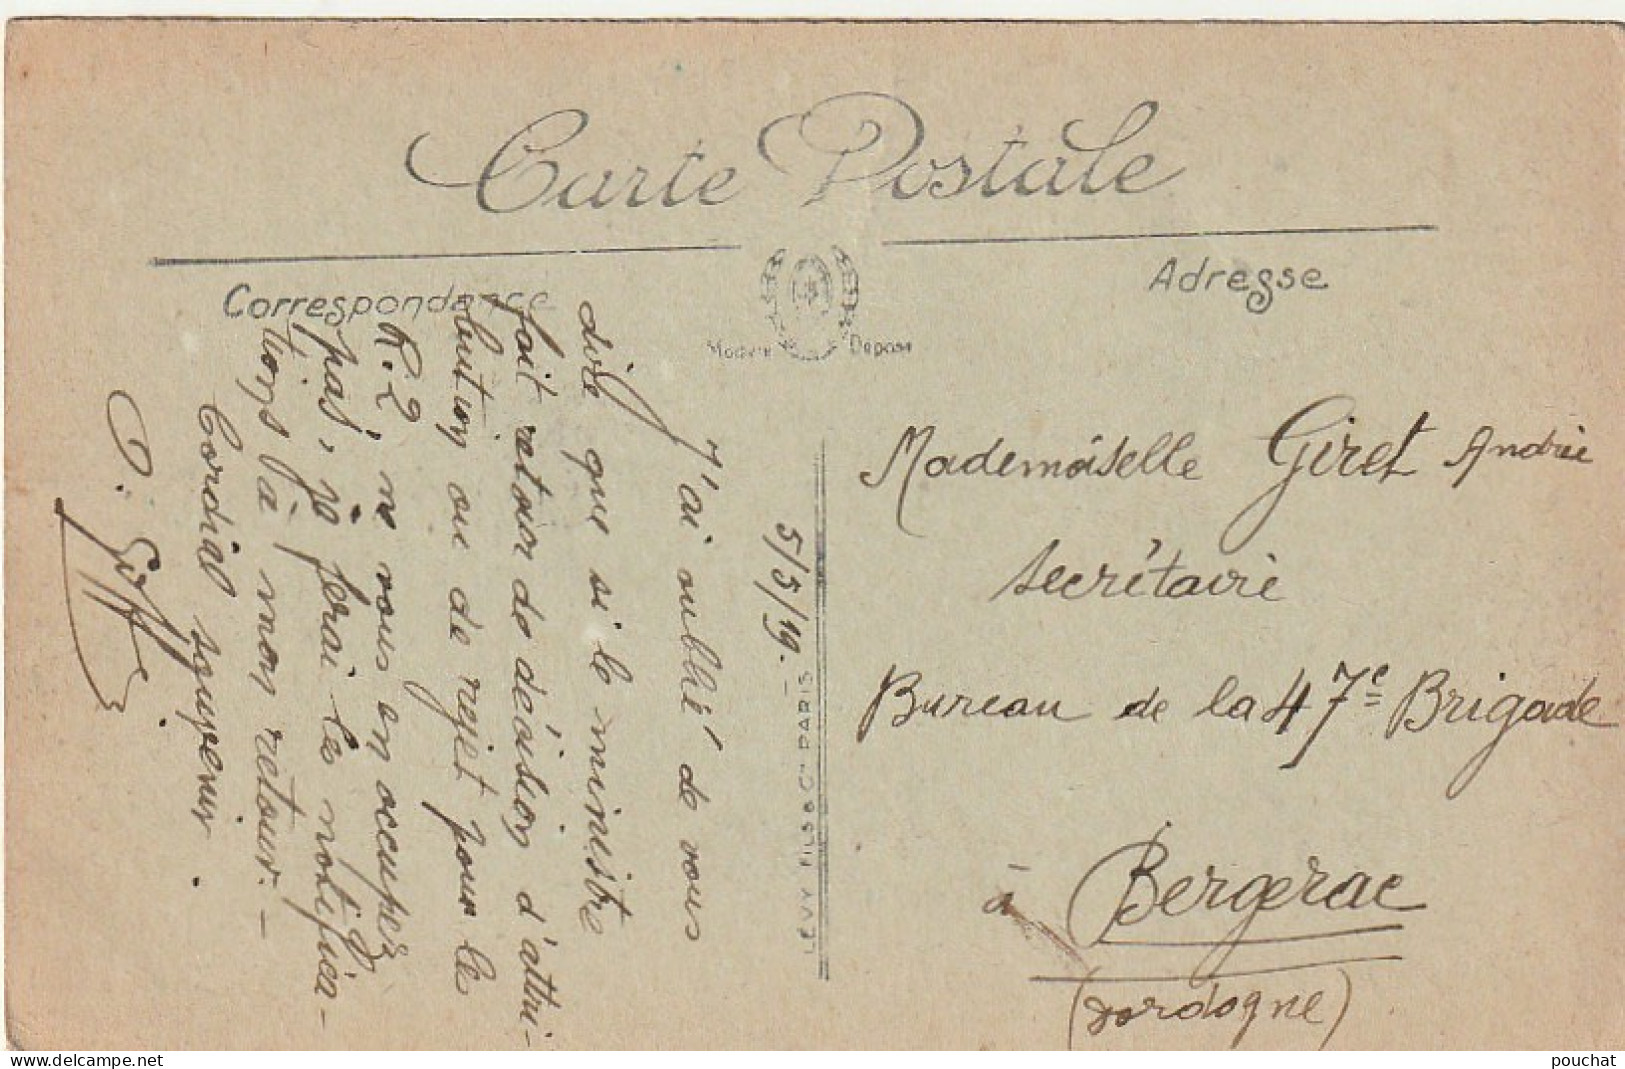 Carte Postale
Correspondance
Adresse
Modèle Déposé
5/5/19.-
J'ai oublié de vous
dire que si le ministre
fait retour de décision d'attri-
bution ou de rejet pour le
R.2, ne vous en occupez
pas, je ferai les notifica-
tions à mon retour.-
Cordial souvenir.
LÉVY FILS & Cie PARIS
Mademoiselle Giret Andrée
Secrétaire
Bureau de la 47e Brigade
à Bergerac
(Dordogne)
delcampe.net
pouchat